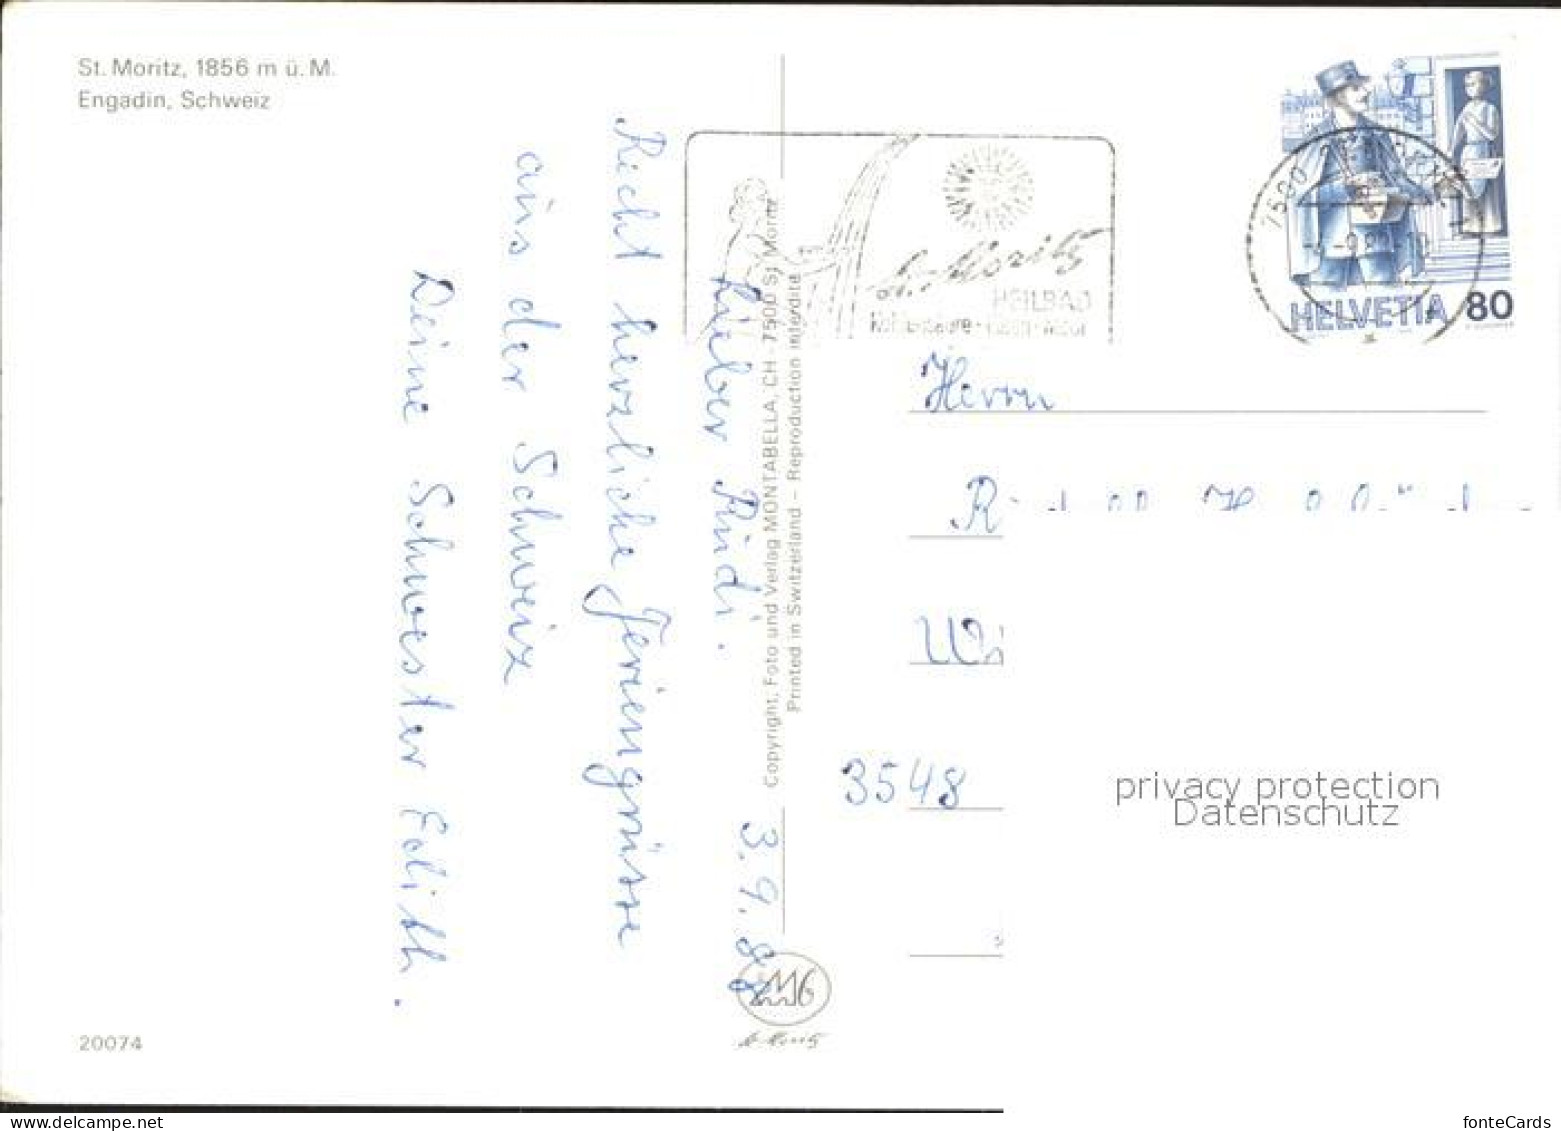 St. Moritz, 1856 m ü. M.
Engadin, Schweiz
3.9.88
Lieber Rudi.
Recht herzliche Feriengrüsse
aus der Schweiz
Deine Schwester Edith.
Copyright, Foto und Verlag MONTABELLA, CH - 7500 St. Moritz
Printed in Switzerland – Reproduction interdite
St. Moritz
HEILBAD
7500
HELVETIA 80
Herrn
3548
privacy protection
Datenschutz
St. Moritz
20074
www.delcampe.net
fonteCards